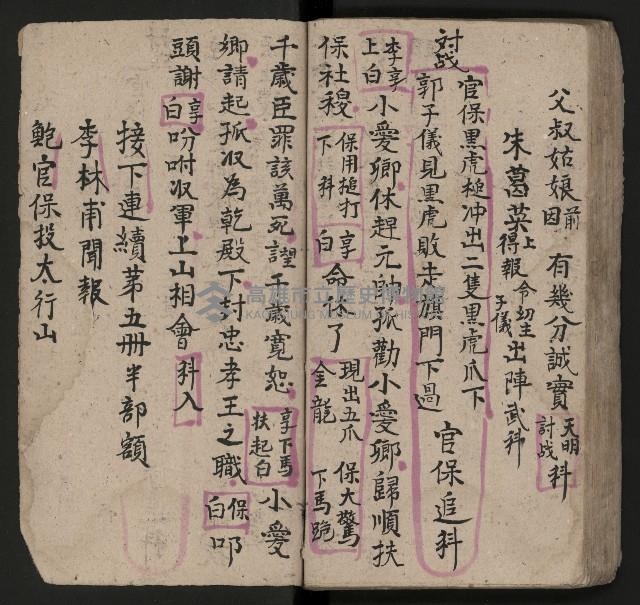 父叔姑娘前因有幾分誠實天明討战科
朱葛英上得報令幼主子儀出陣武科
討战官保黑虎槌冲出二隻黑虎爪下
郭子儀見黑虎敗走旗門下過官保追科
李享上白小愛卿休趕元帥孤勸小愛卿歸順扶
保社稷保用搥打下科享白命抹了現出五爪金龍保大驚下馬跪
千歲臣罪該萬死望千歲寬恕享下馬扶起白小愛
卿請起孤収為乾殿下封忠孝王之職保白叩
頭謝享白吩咐収軍上山相會科入
接下連續第五册半部額
李林甫聞報
鮑官保投太行山
高雄市立歷史博物館
KAOHSIUNG MUSEUM OF HISTORY